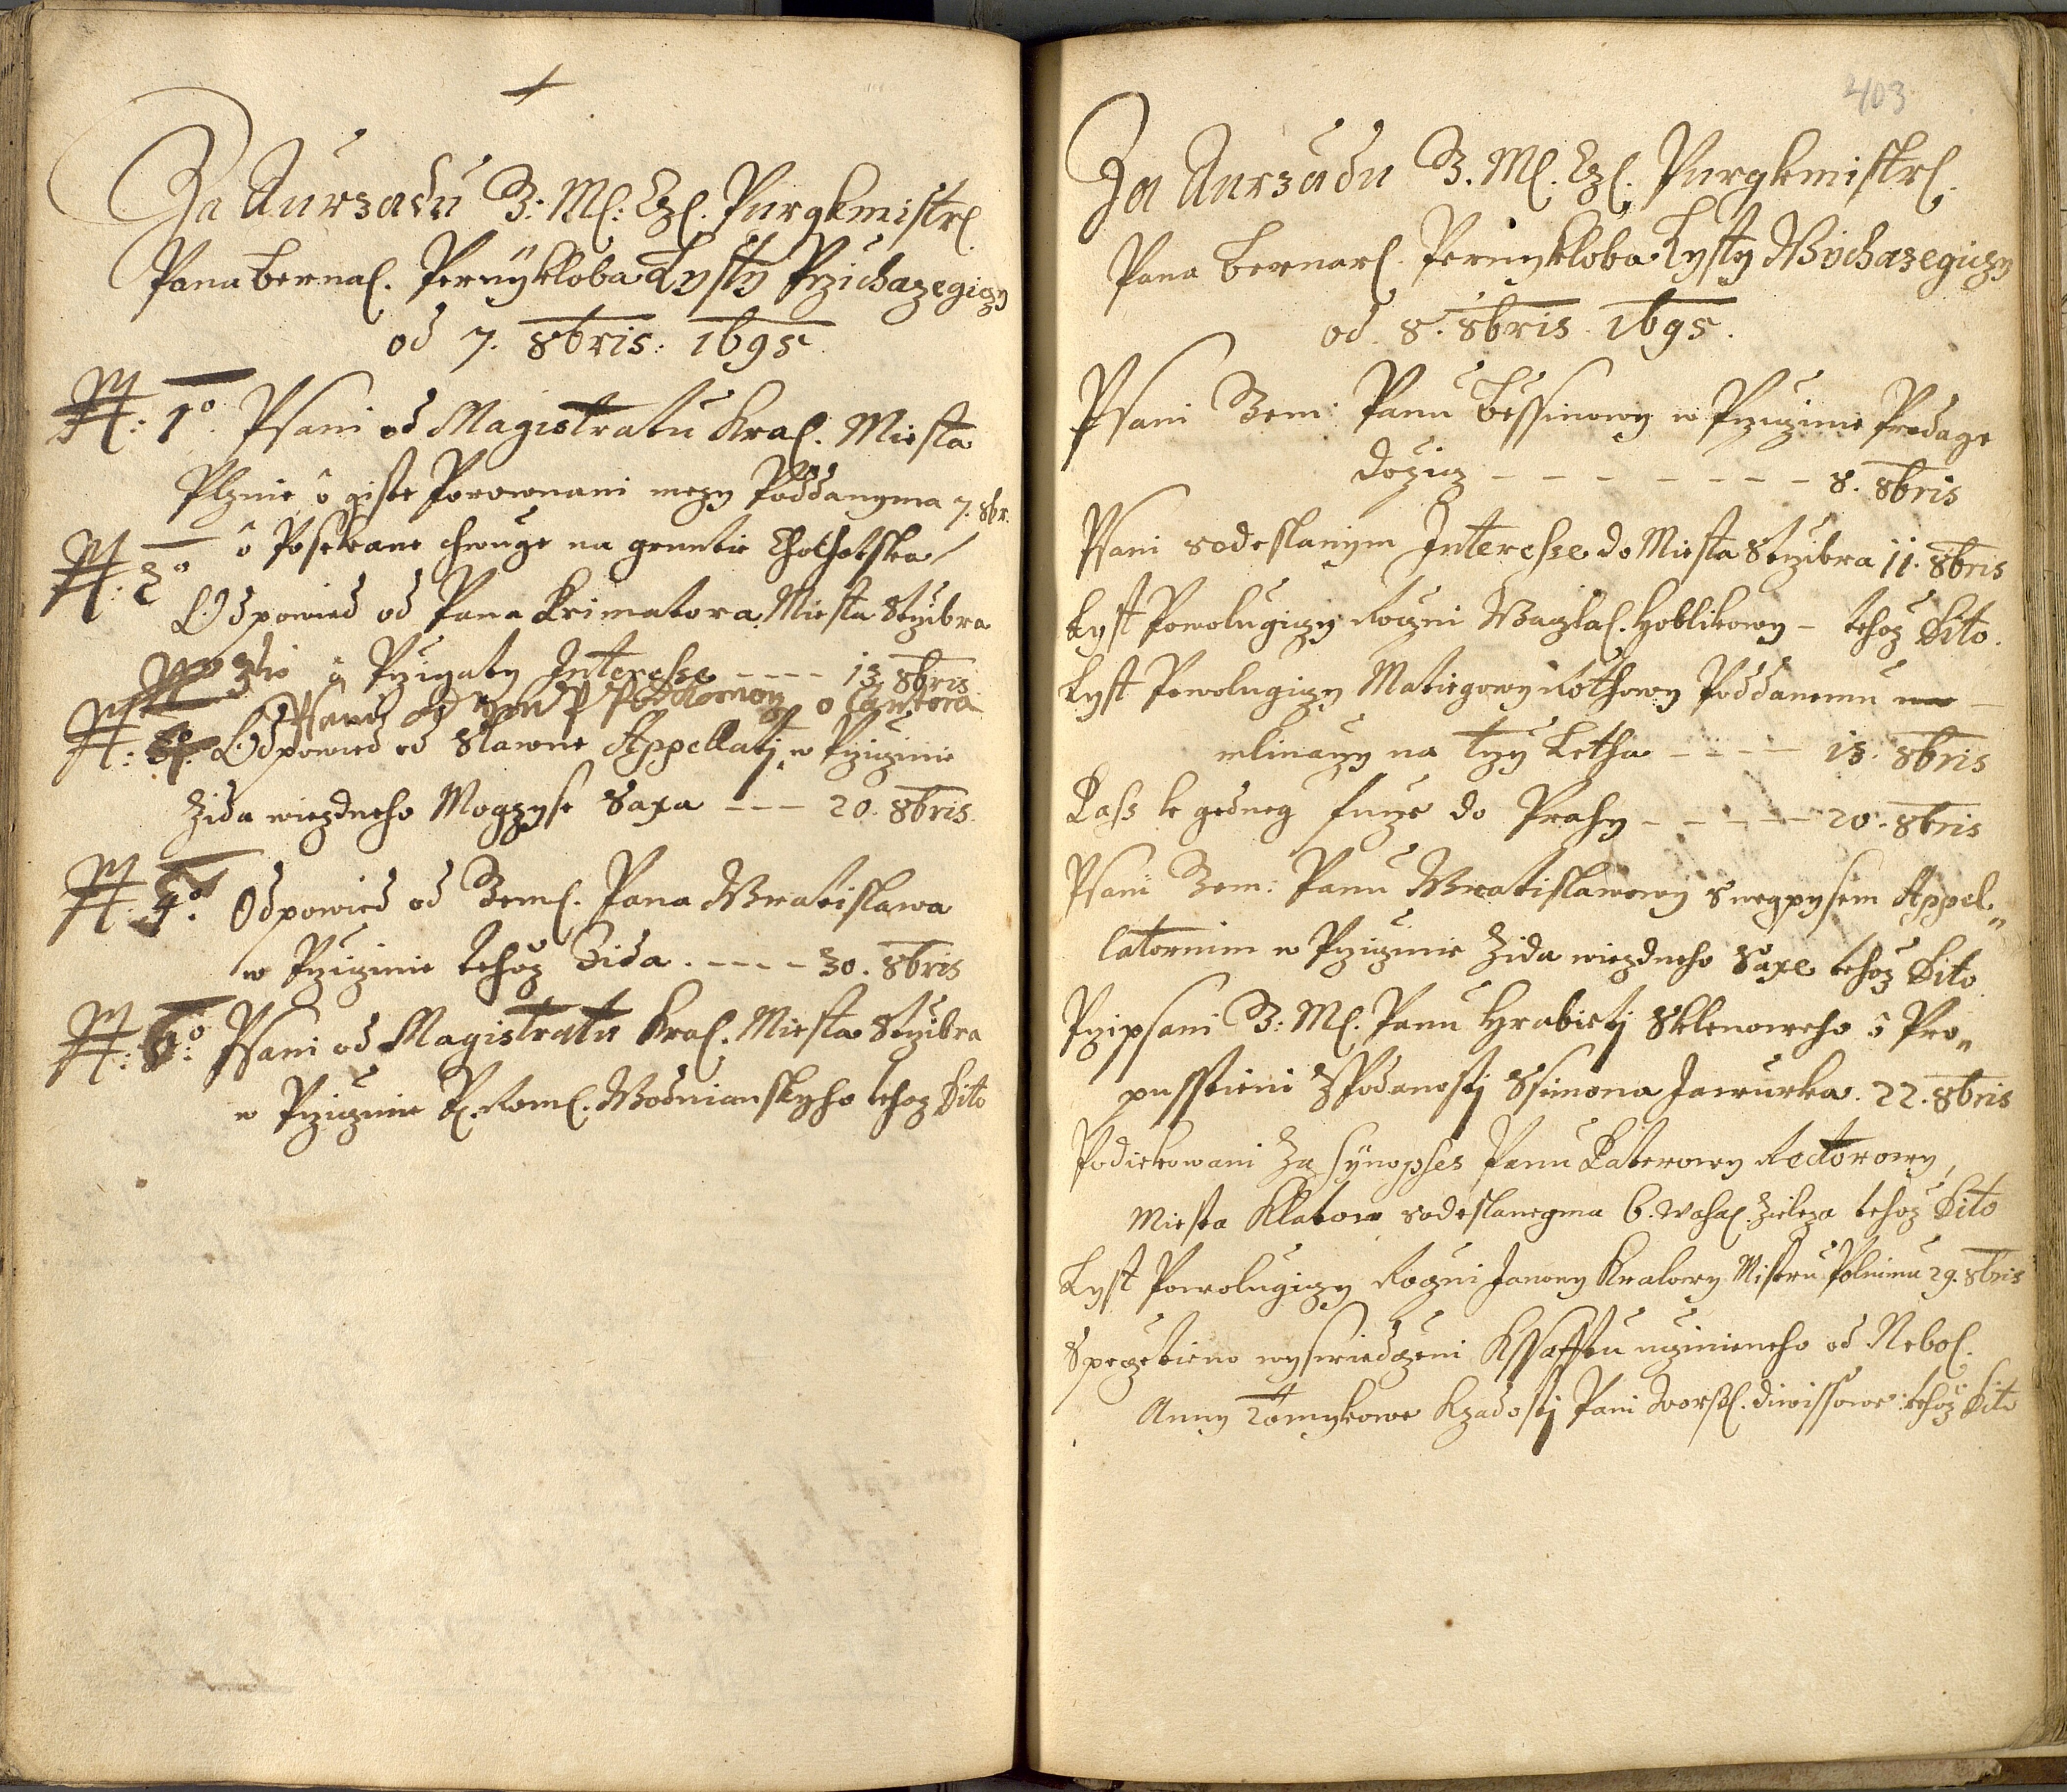 Za Aurzadu B: Ml: Czl. Purgkmistrl.
Pana Bernal. Pernykloba Lysty Przichazegiczy
od 7. 8bris: 1695
N: 1o. Psani od Magistratu Kral. Miesta
Plznie o giste Porownani mezy Poddanyma 7. 8br.
o Posekane chwuge na gruntie
N: 2o
Odpowied od Pana Primatora Miesta Strzibra
N 3tio o Przigaty Interesse ---- 13. 8bris
Psani od P o Cantora
N: Odpowied od Slawne Appellatj w Prziczinie
Zida wiezdneho Mogzyse Saxa --- 20. 8bris.
N: Odpowied od Beml. Pana Wratislawa
w Prziczinie tehoz Zida . ---- 30. 8bris
N: Psani od Magistratu Kral. Miesta Strzibra
w Prziczinie P. Roml. Wodnianskyho tehoz Dito
403
Za Aurzadu B. Ml. Czl. Purgkmistrl.
Pana Bernarl. Pernykloba Lysty Wychazegiczy
od. 8. 8bris. 1695.
Psani Bem: Panu Bessinowy w Prziczinie Prodage
Dozicz - - - - - - - - 8. 8bris
Psani sodeslanym Interesse do Miesta Strzibra 11. 8bris
Lyst Powolugiczy Roczni Waczlal. Hoblikowy - tehoz Dito.
Lyst Powolugiczy Matiegowy Rothowy Poddanemu
mlinarzy na Trzy Letha - - - - 13. 8bris
Pass k gedneg furze do Prahy - - - - - 20. 8bris
Psani Bem: Panu Wratislawowy s wegpysem Appel„
latornim w Prziczinie Zida wiezdneho Saxe tehoz Dito
Przipsani B: Ml. Panu Hrabietj Sklenoweho o Pro„
pusstieni z Podanostj Ssimona Jawurka. 22. 8bris
Podiekowani Za synopses Panu Paterowy Rectorowy,
Miesta Klatow sodeslanegma 6. Wahal. Zieleza tehoz Dito
Lyst Powolugiczy Roczni Janowy Kralowy Mistru Polnimu 29. 8bris
Speczetieno wyswiedczeni Kssafftu uczinieneho od Nebol.
Anny Tomykowe Kzadostj Pani Dworskl. Diwissowe: tehoz Dito